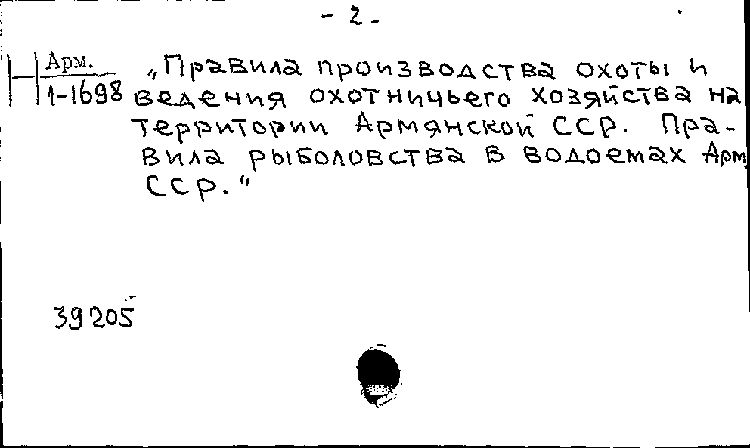 - 2 -
Арм.
1-1698
„Правила производства охоты и
ведения охотничьего хозяйства на
территории Армянской ССР. Пра-
вила рыболовства в водоемах Арм
ССР."
39205